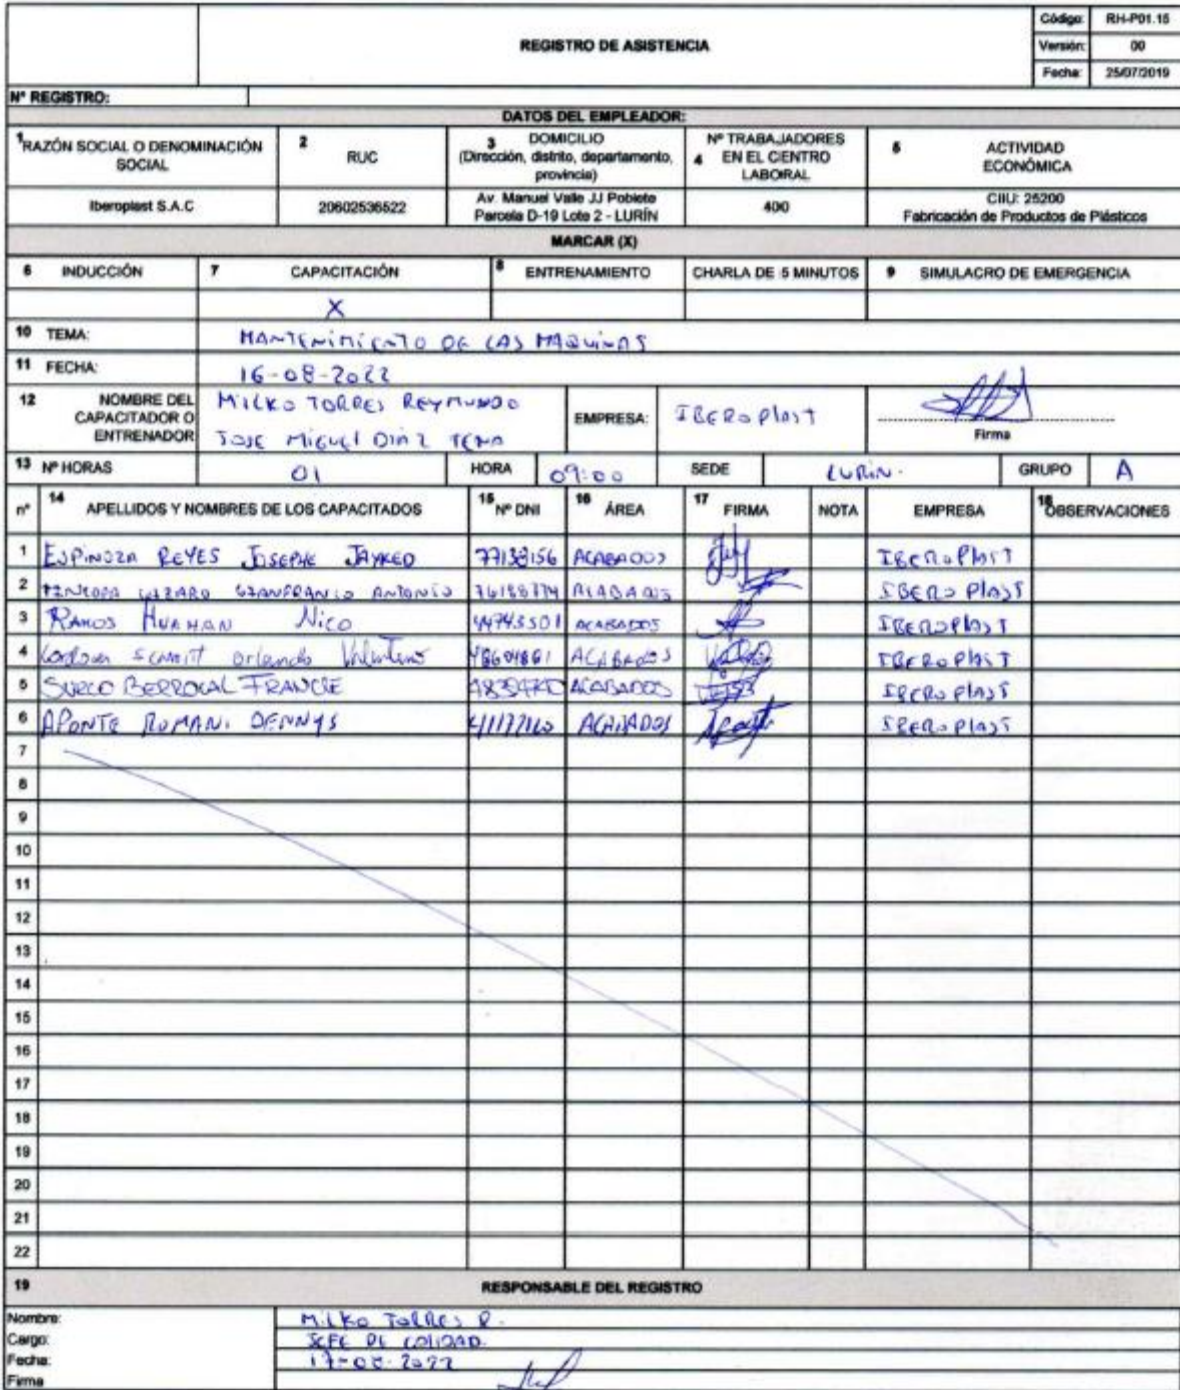 Código: RH-P01.15
REGISTRO DE ASISTENCIA
Versión: 00
Fecha: 25/07/2019
N° REGISTRO:
DATOS DEL EMPLEADOR:
1 RAZÓN SOCIAL O DENOMINACIÓN SOCIAL
2 RUC
3 DOMICILIO (Dirección, distrito, departamento, provincia)
4 Nº TRABAJADORES EN EL CENTRO LABORAL
5 ACTIVIDAD ECONÓMICA
Iberoplast S.A.C
20602536522
Av. Manuel Valle JJ Poblete Parcela D-19 Lote 2 - LURÍN
400
CIIU: 25200 Fabricación de Productos de Plásticos
MARCAR (X)
6 INDUCCIÓN 7 CAPACITACIÓN 8 ENTRENAMIENTO CHARLA DE 5 MINUTOS 9 SIMULACRO DE EMERGENCIA
X
10 TEMA: MANTENIMIENTO DE LAS MAQUINAS
11 FECHA: 16-08-2022
12 NOMBRE DEL CAPACITADOR O ENTRENADOR
MILKO TORRES REYMUNDO
JOSE MIGUEL DIAZ
EMPRESA: IBEROPlAST
Firma
13 Nº HORAS 01 HORA 09:00 SEDE LURIN. GRUPO A
n° 14 APELLIDOS Y NOMBRES DE LOS CAPACITADOS 15 Nº DNI 16 ÁREA 17 FIRMA NOTA EMPRESA 18 OBSERVACIONES
1 ESPINOZA REYES JOSEPHE JAYRED ACABADOS IBEROPlAST
2 ANTONIO ACABADOS IBEROPlAST
3 RAMOS HUAMAN Nico 44743501 ACABADOS IBEROPlAST
4 Orlando ACABADOS IBEROPlAST
5 SURCO BERROCAL ACABADOS IBEROPlAST
6 APONTE ROMANI DENNYS ACABADOS IBEROPlAST
7
8
9
10
11
12
13
14
15
16
17
18
19
20
21
22
19 RESPONSABLE DEL REGISTRO
Nombre: MILKO TORRES R.
Cargo: JEFE DE CALIDAD.
Fecha: 17-08-2022
Firma